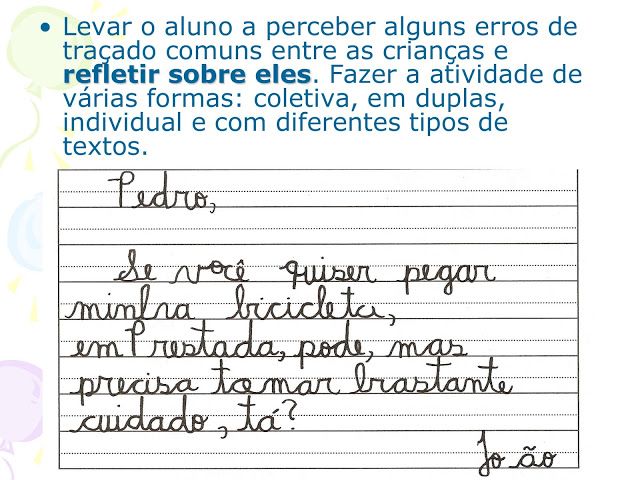 • Levar o aluno a perceber alguns erros de
traçado comuns entre as crianças e
refletir sobre eles. Fazer a atividade de
várias formas: coletiva, em duplas,
individual e com diferentes tipos de
textos.
Pedro,
Se você quiser pegar
minha bicicleta,
emPrestada, pode, mas
precisa tomar brastante
cuidado, tá?
João